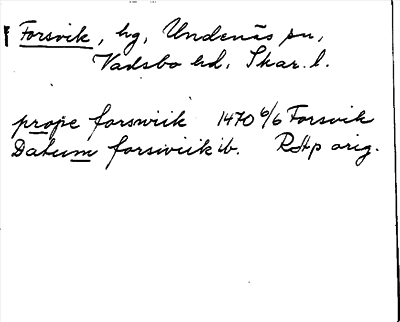 Forsvik, hg, Undenäs sn,
Vadsbo hd, Skar. l.
prope forswiik 1470 6/6 Forsvik
Datum forswiik ib. RAp orig.